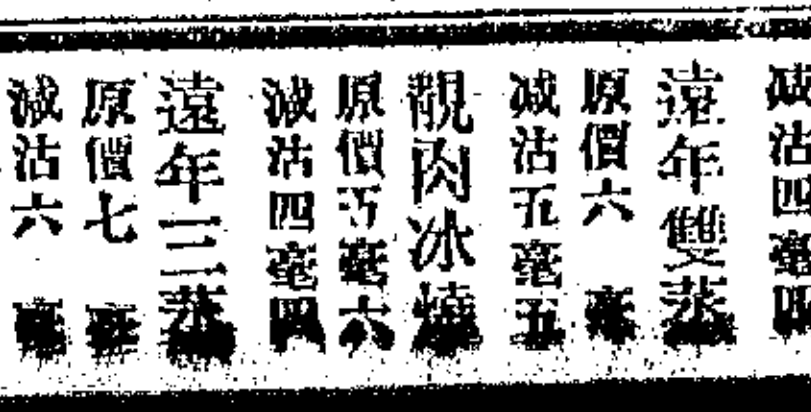 減沽四毫四
遠年雙蒸
原價六毫
減沽五毫五
靚肉冰燒
原價五毫六
減沽四毫四
遠年三蒸
原價七毫
減沽六毫